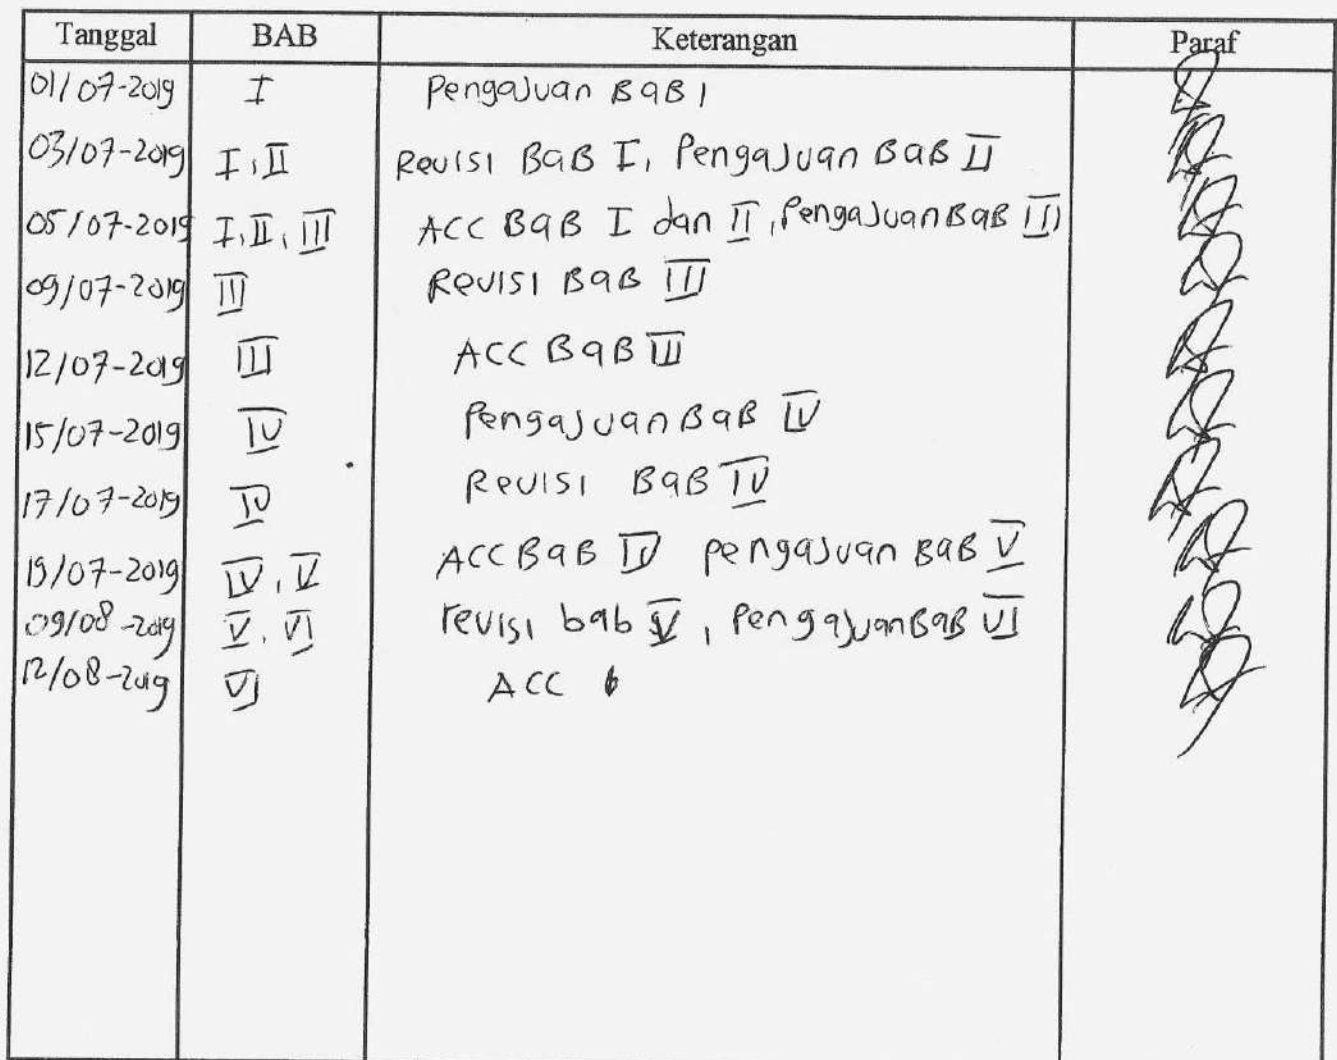 Tanggal BAB Keterangan Paraf
01/07-2019 I Pengajuan BAB 1
03/07-2019 I, II Revisi BAB I, Pengajuan BAB II
05/07-2019 I, II, III ACC BAB I dan II, Pengajuan BAB III
09/07-2019 III Revisi BAB III
12/07-2019 III ACC BAB III
15/07-2019 IV Pengajuan BAB IV
17/07-2019 IV Revisi BAB IV
19/07-2019 IV, V ACC BAB IV pengajuan BAB V
09/08-2019 V, VI revisi bab V, Pengajuan BAB VI
12/08-2019 VI ACC